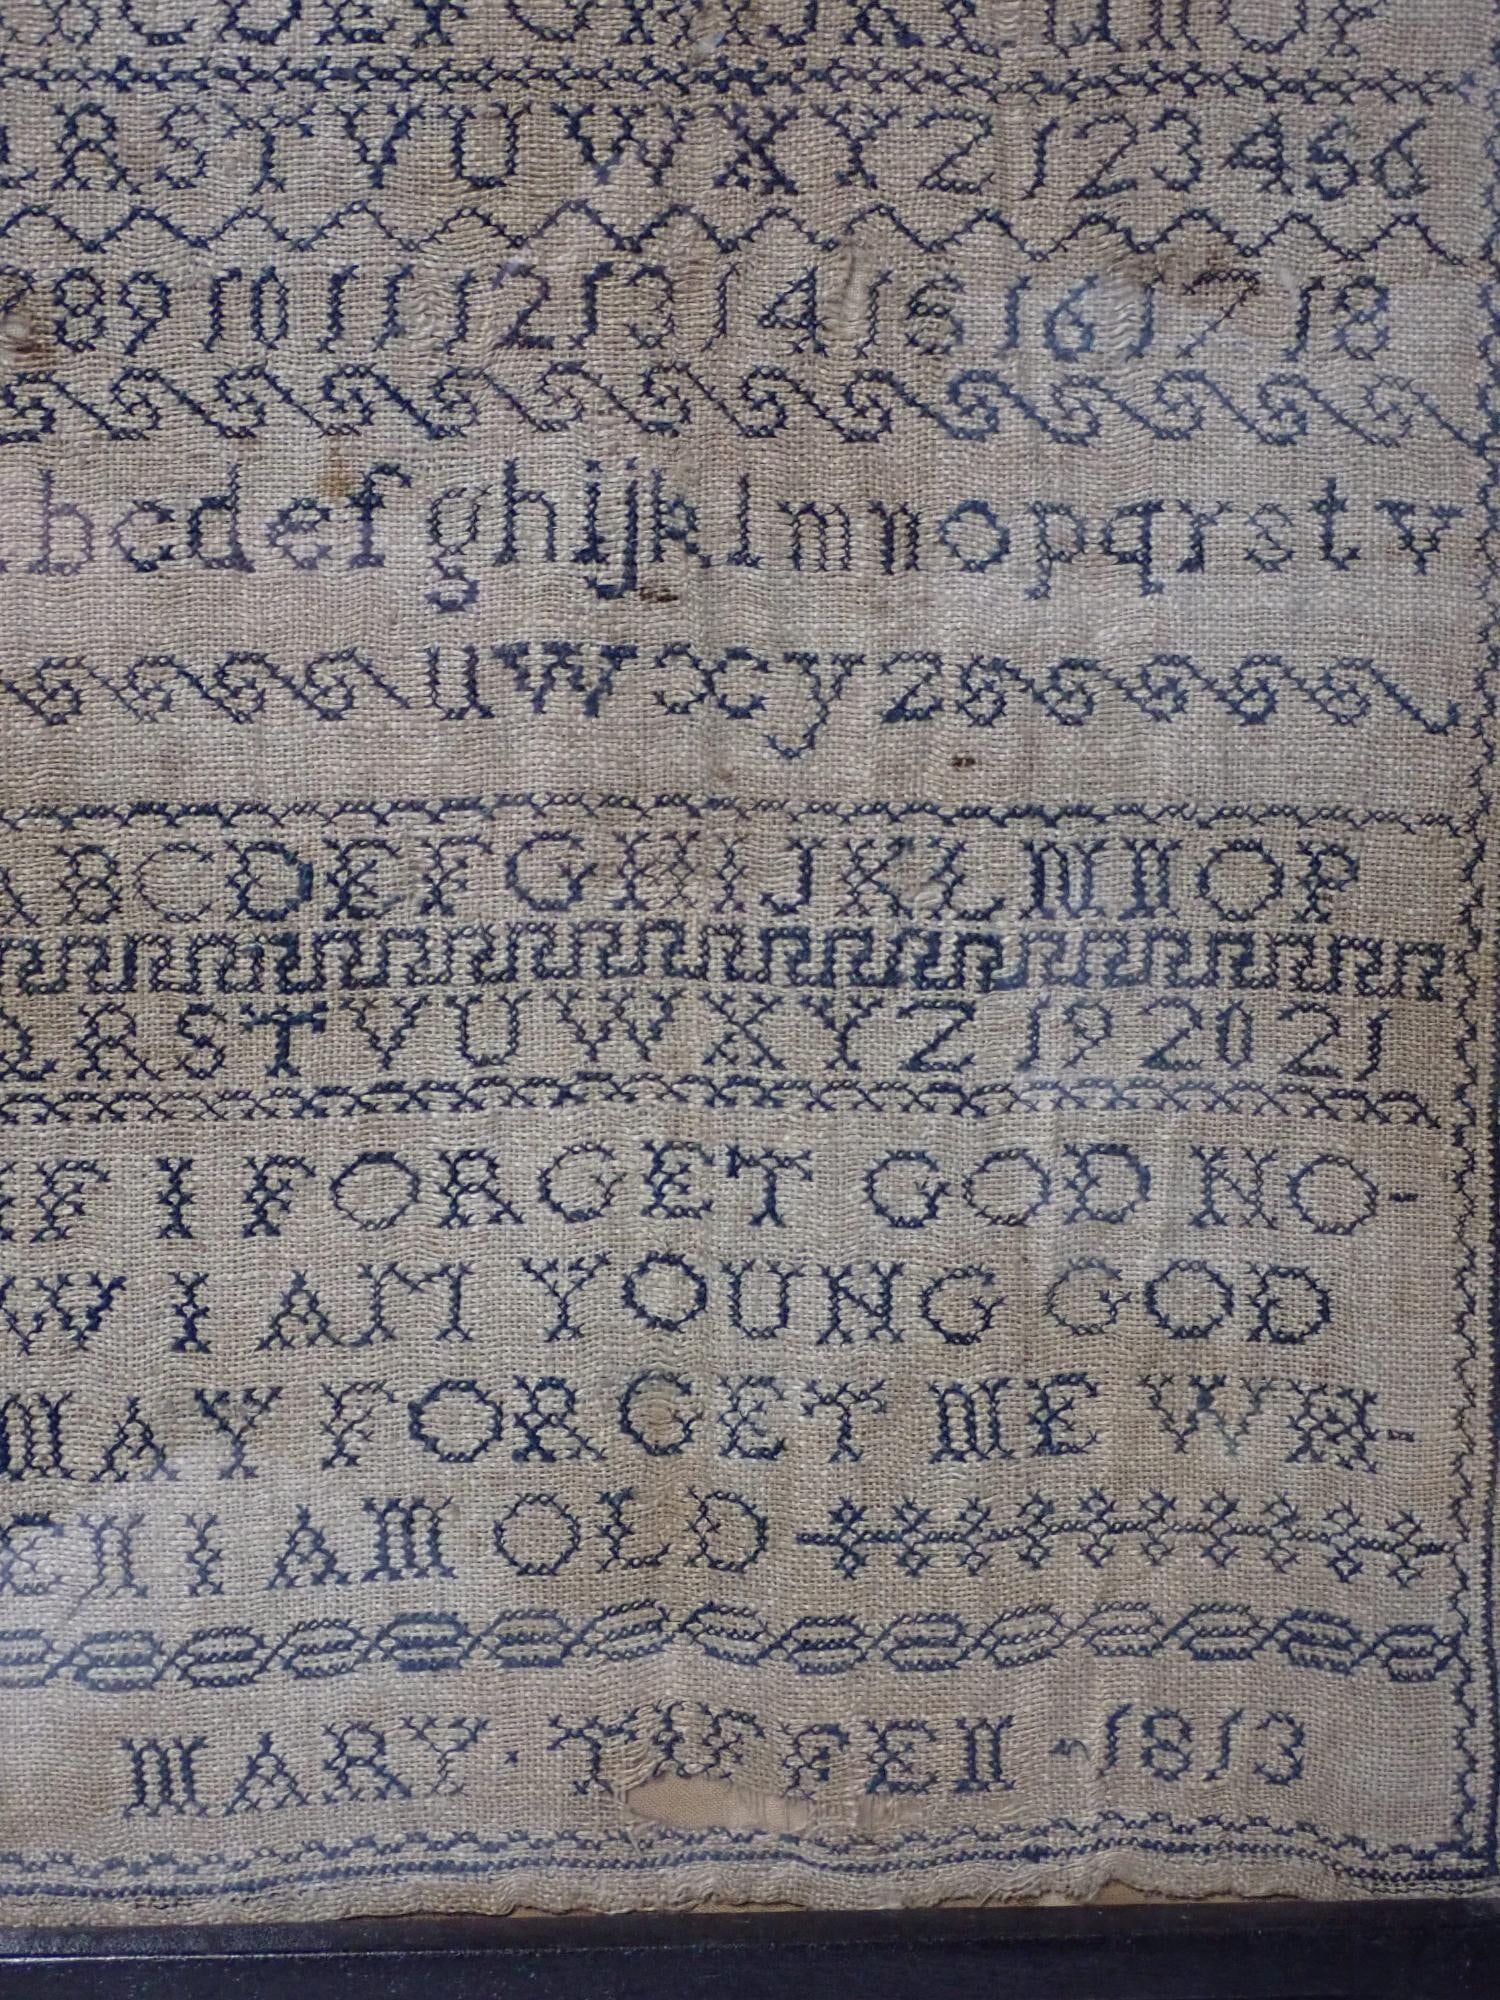 B C D E F G H I J K L M N O P
R S T V U W X Y Z 1 2 3 4 5 6
8 9 10 11 12 13 14 15 16 17 18
b c d e f g h i j k l m n o p q r s t v
u w x y z
A B C D E F G H I J K L M N O P
Q R S T V U W X Y Z 19 20 21
IF I FORGET GOD NO-
W I AM YOUNG GOD
MAY FORGET ME WH-
EN I AM OLD
MARY · TOFFEN · 1813